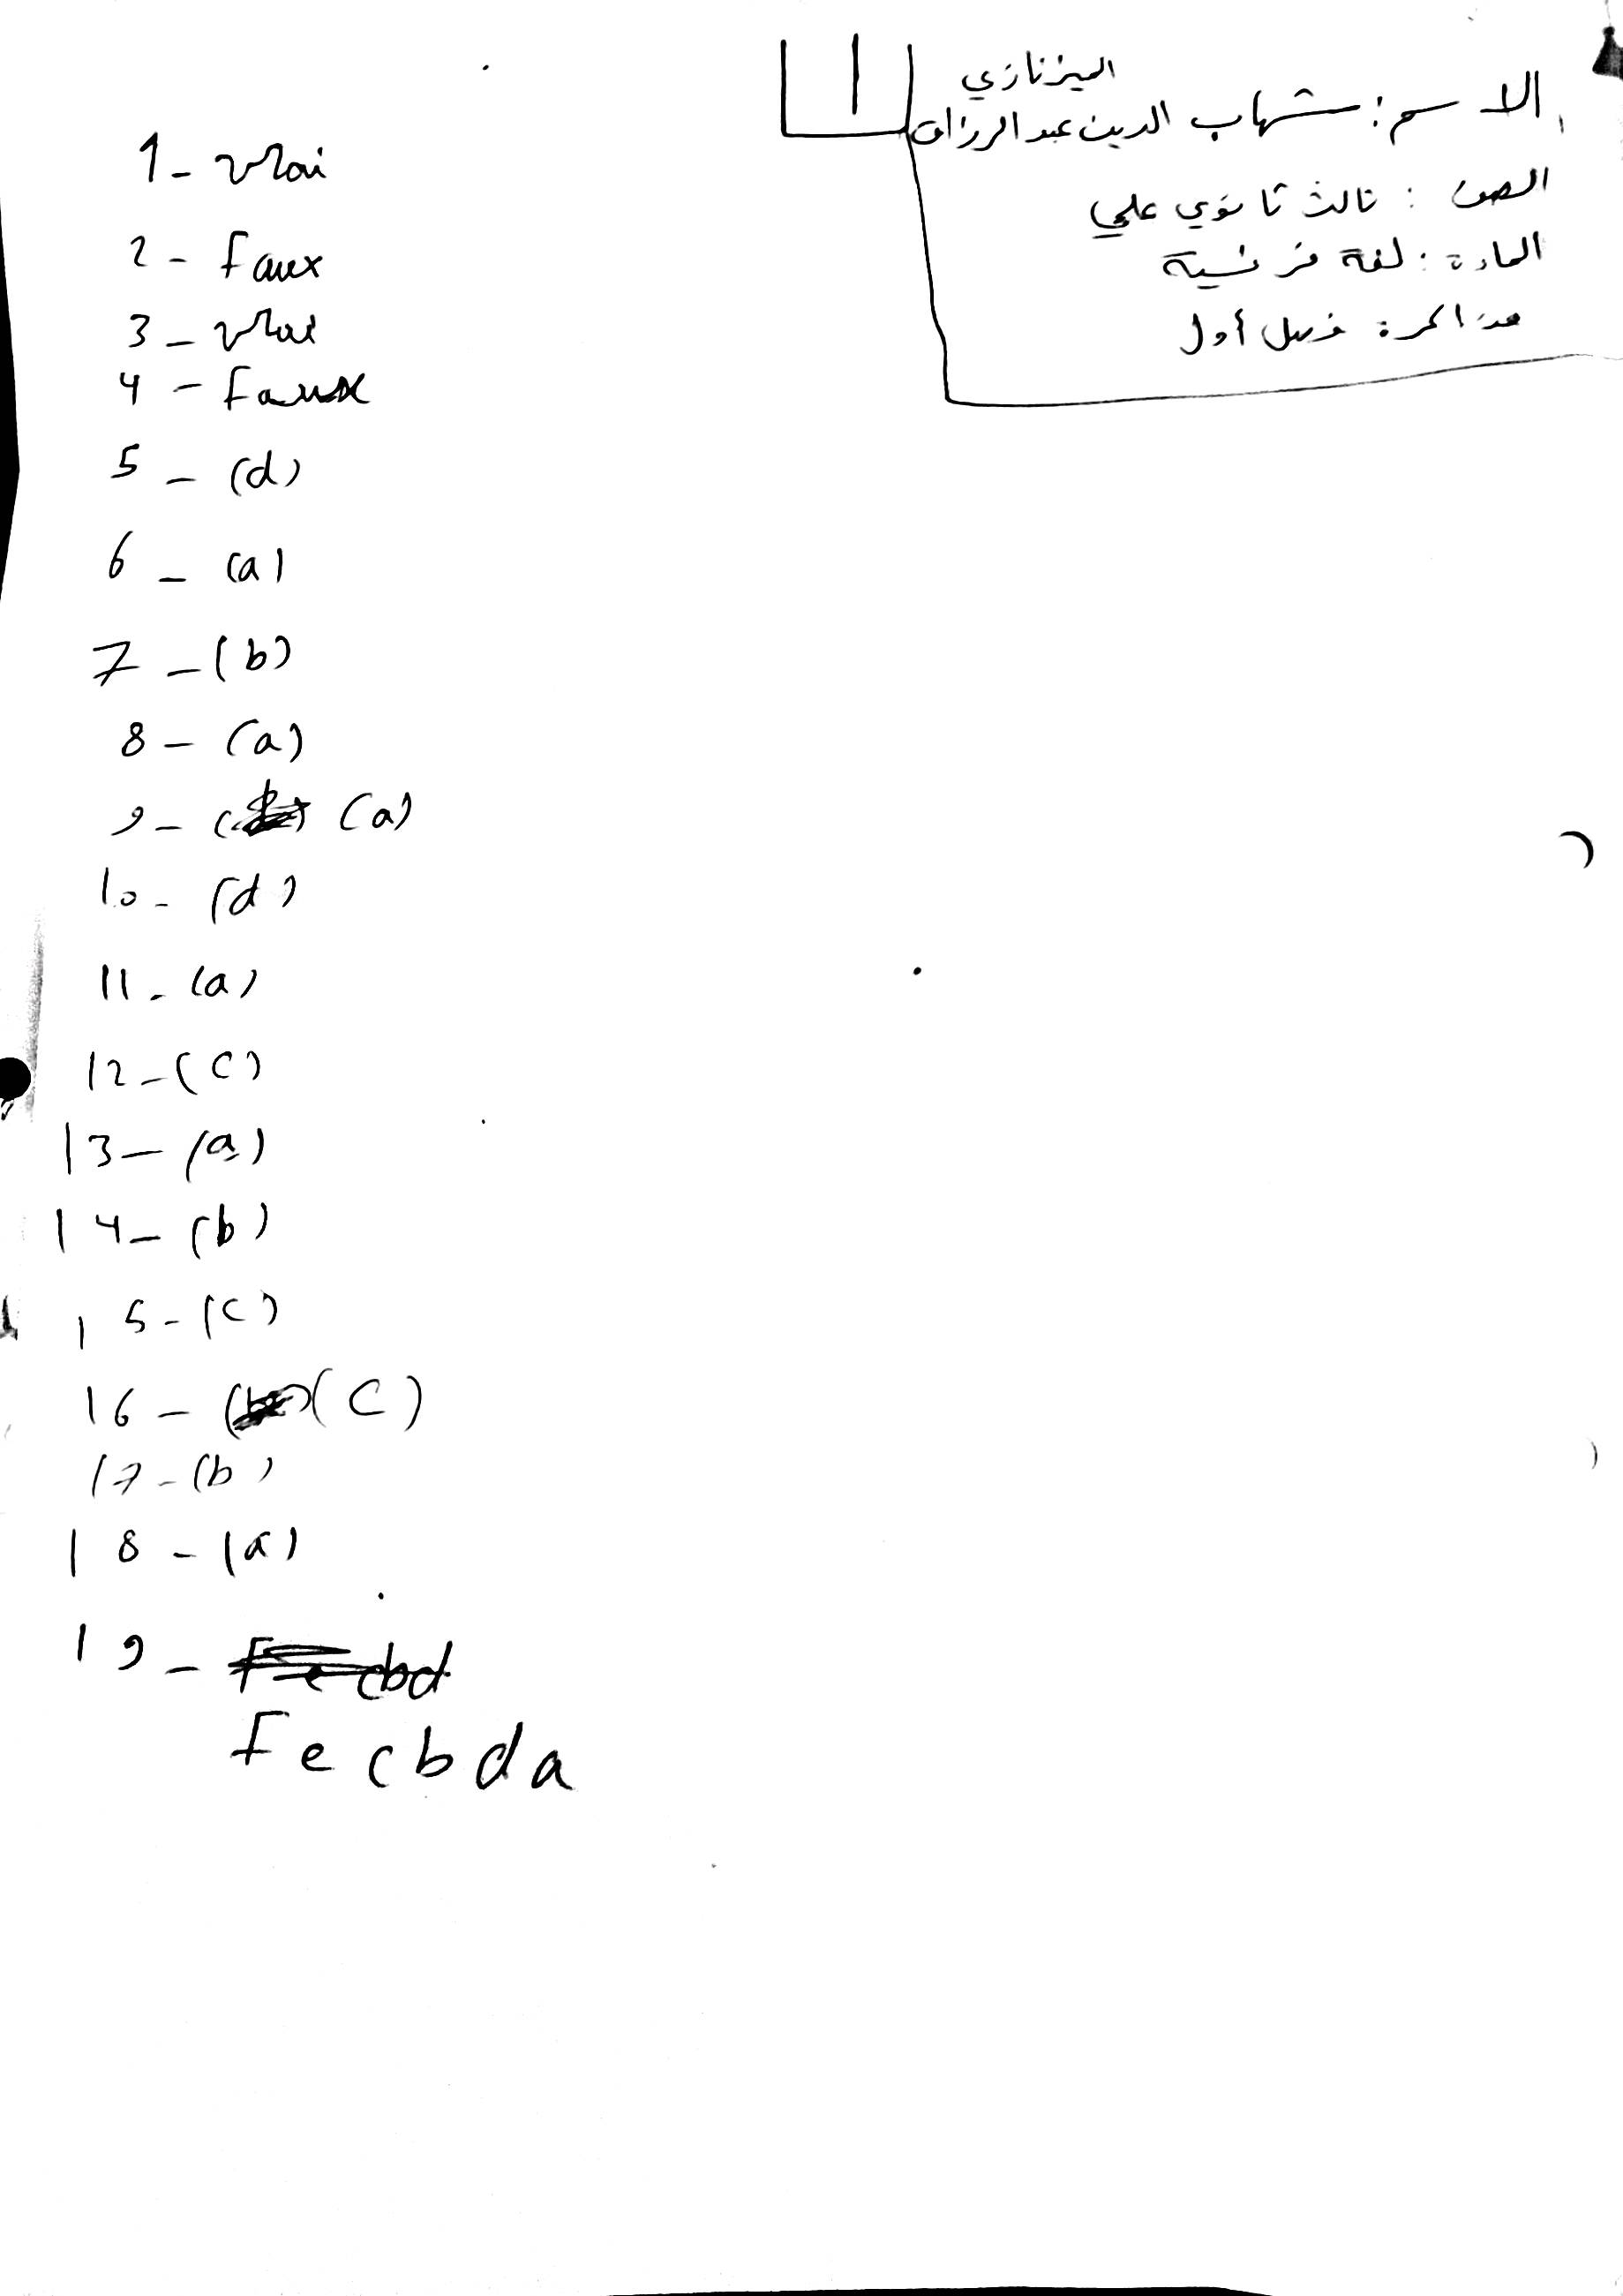 الميزنازي
الاسم: شهاب الدين عبد الرزاق
الصف: ثالث ثانوي علمي
المادة: لغة فرنسية
مذاكرة: فصل أول
1 - vrai
2 - Faux
3 - vrai
4 - Faux
5 - (d)
6 - (a)
7 - (b)
8 - (a)
9 - (a)
10 - (d)
11 - (a)
12 - (C)
13 - (a)
14 - (b)
15 - (C)
16 - (C)
17 - (b)
18 - (a)
19 - F e cbd
F e c b d a